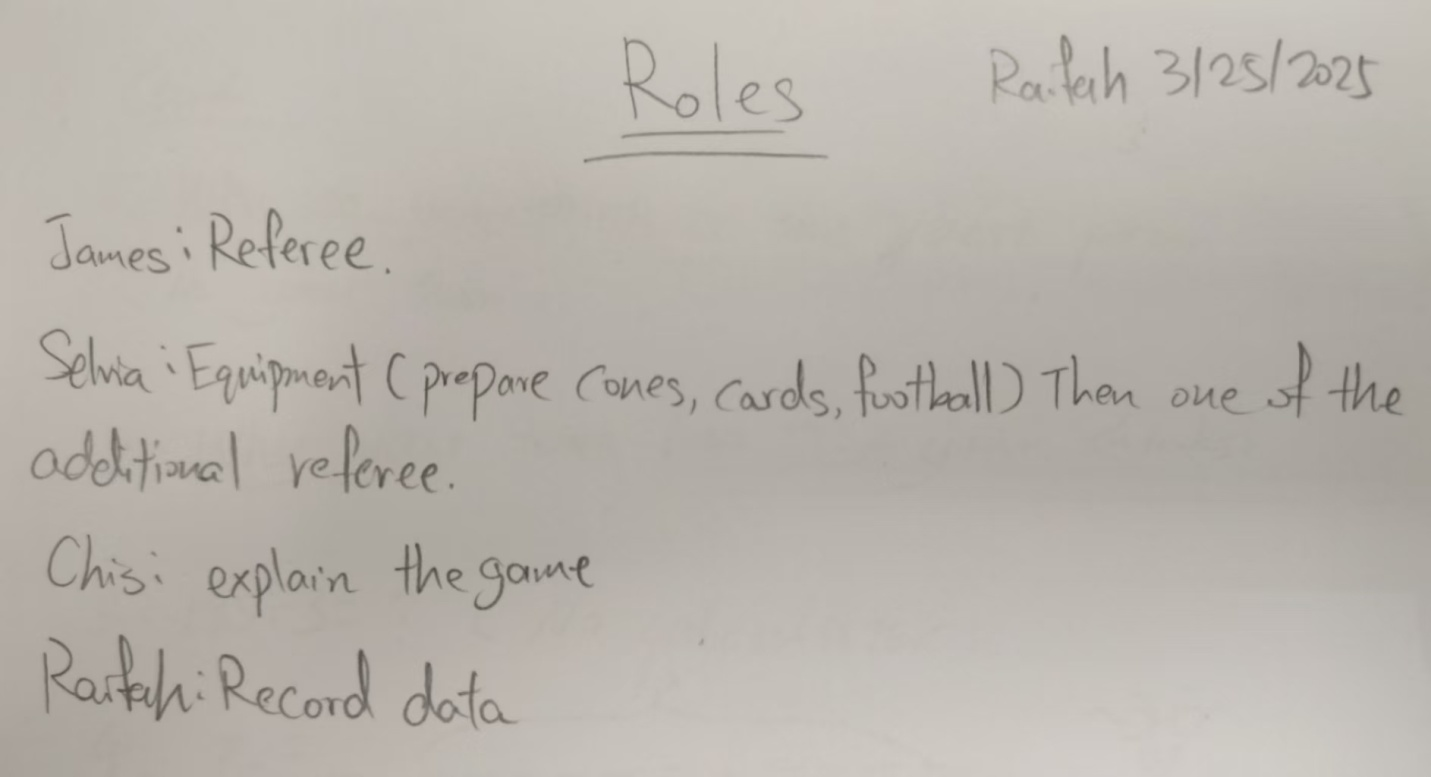 Roles
Raifah 3/25/2025
James: Referee.
Selvia: Equipment (prepare Cones, cards, football) Then one of the
additional referee.
Chis: explain the game
Raifah: Record data